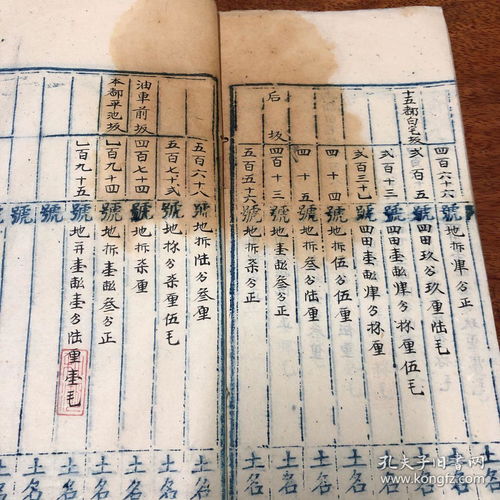 十五都白宅坂
四百六十六號地拆肆分正
弍百五號四田玖分玖厘陆毛
弍百十三號四田壹畝肆分柒厘伍毛
弍百三十乚號四田壹畝肆分柒厘
四十四號地拆伍分伍厘
后坂
四十五號地拆叁分陆厘
四百十三號地拆壹畝叁分正
五百五十六號地拆柒分正
土名
土名
土名
土名
土名
土名
土名
土名
五百六十八號地拆陆分叁厘
五百七十弍號地柒分柒厘伍毛
油車前坂
四百七十四號地拆柒厘
本都平池坂
乚百九十四號地拆壹畝叁分正
乚百九十五號地壹畝壹分陆厘壹毛
號
號
土名
土名
土名
土名
土名
土名
土名
孔夫子旧书网
www.kongfz.com